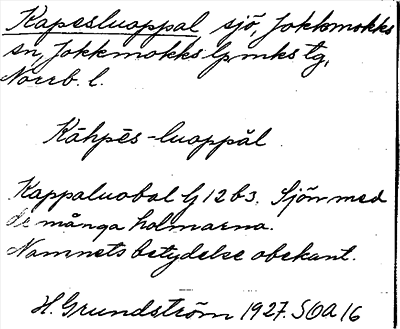 Kapesluoppal, sjö, Jokkmokks
sn, Jokkmokks lpmks tg,
Norrb. l.
Kāhpēs-luoppăl
Kappaluobal G 12 b3. Sjön med
de många holmarna.
Namnets betydelse obekant.
H. Grundström 1927. SOA 16